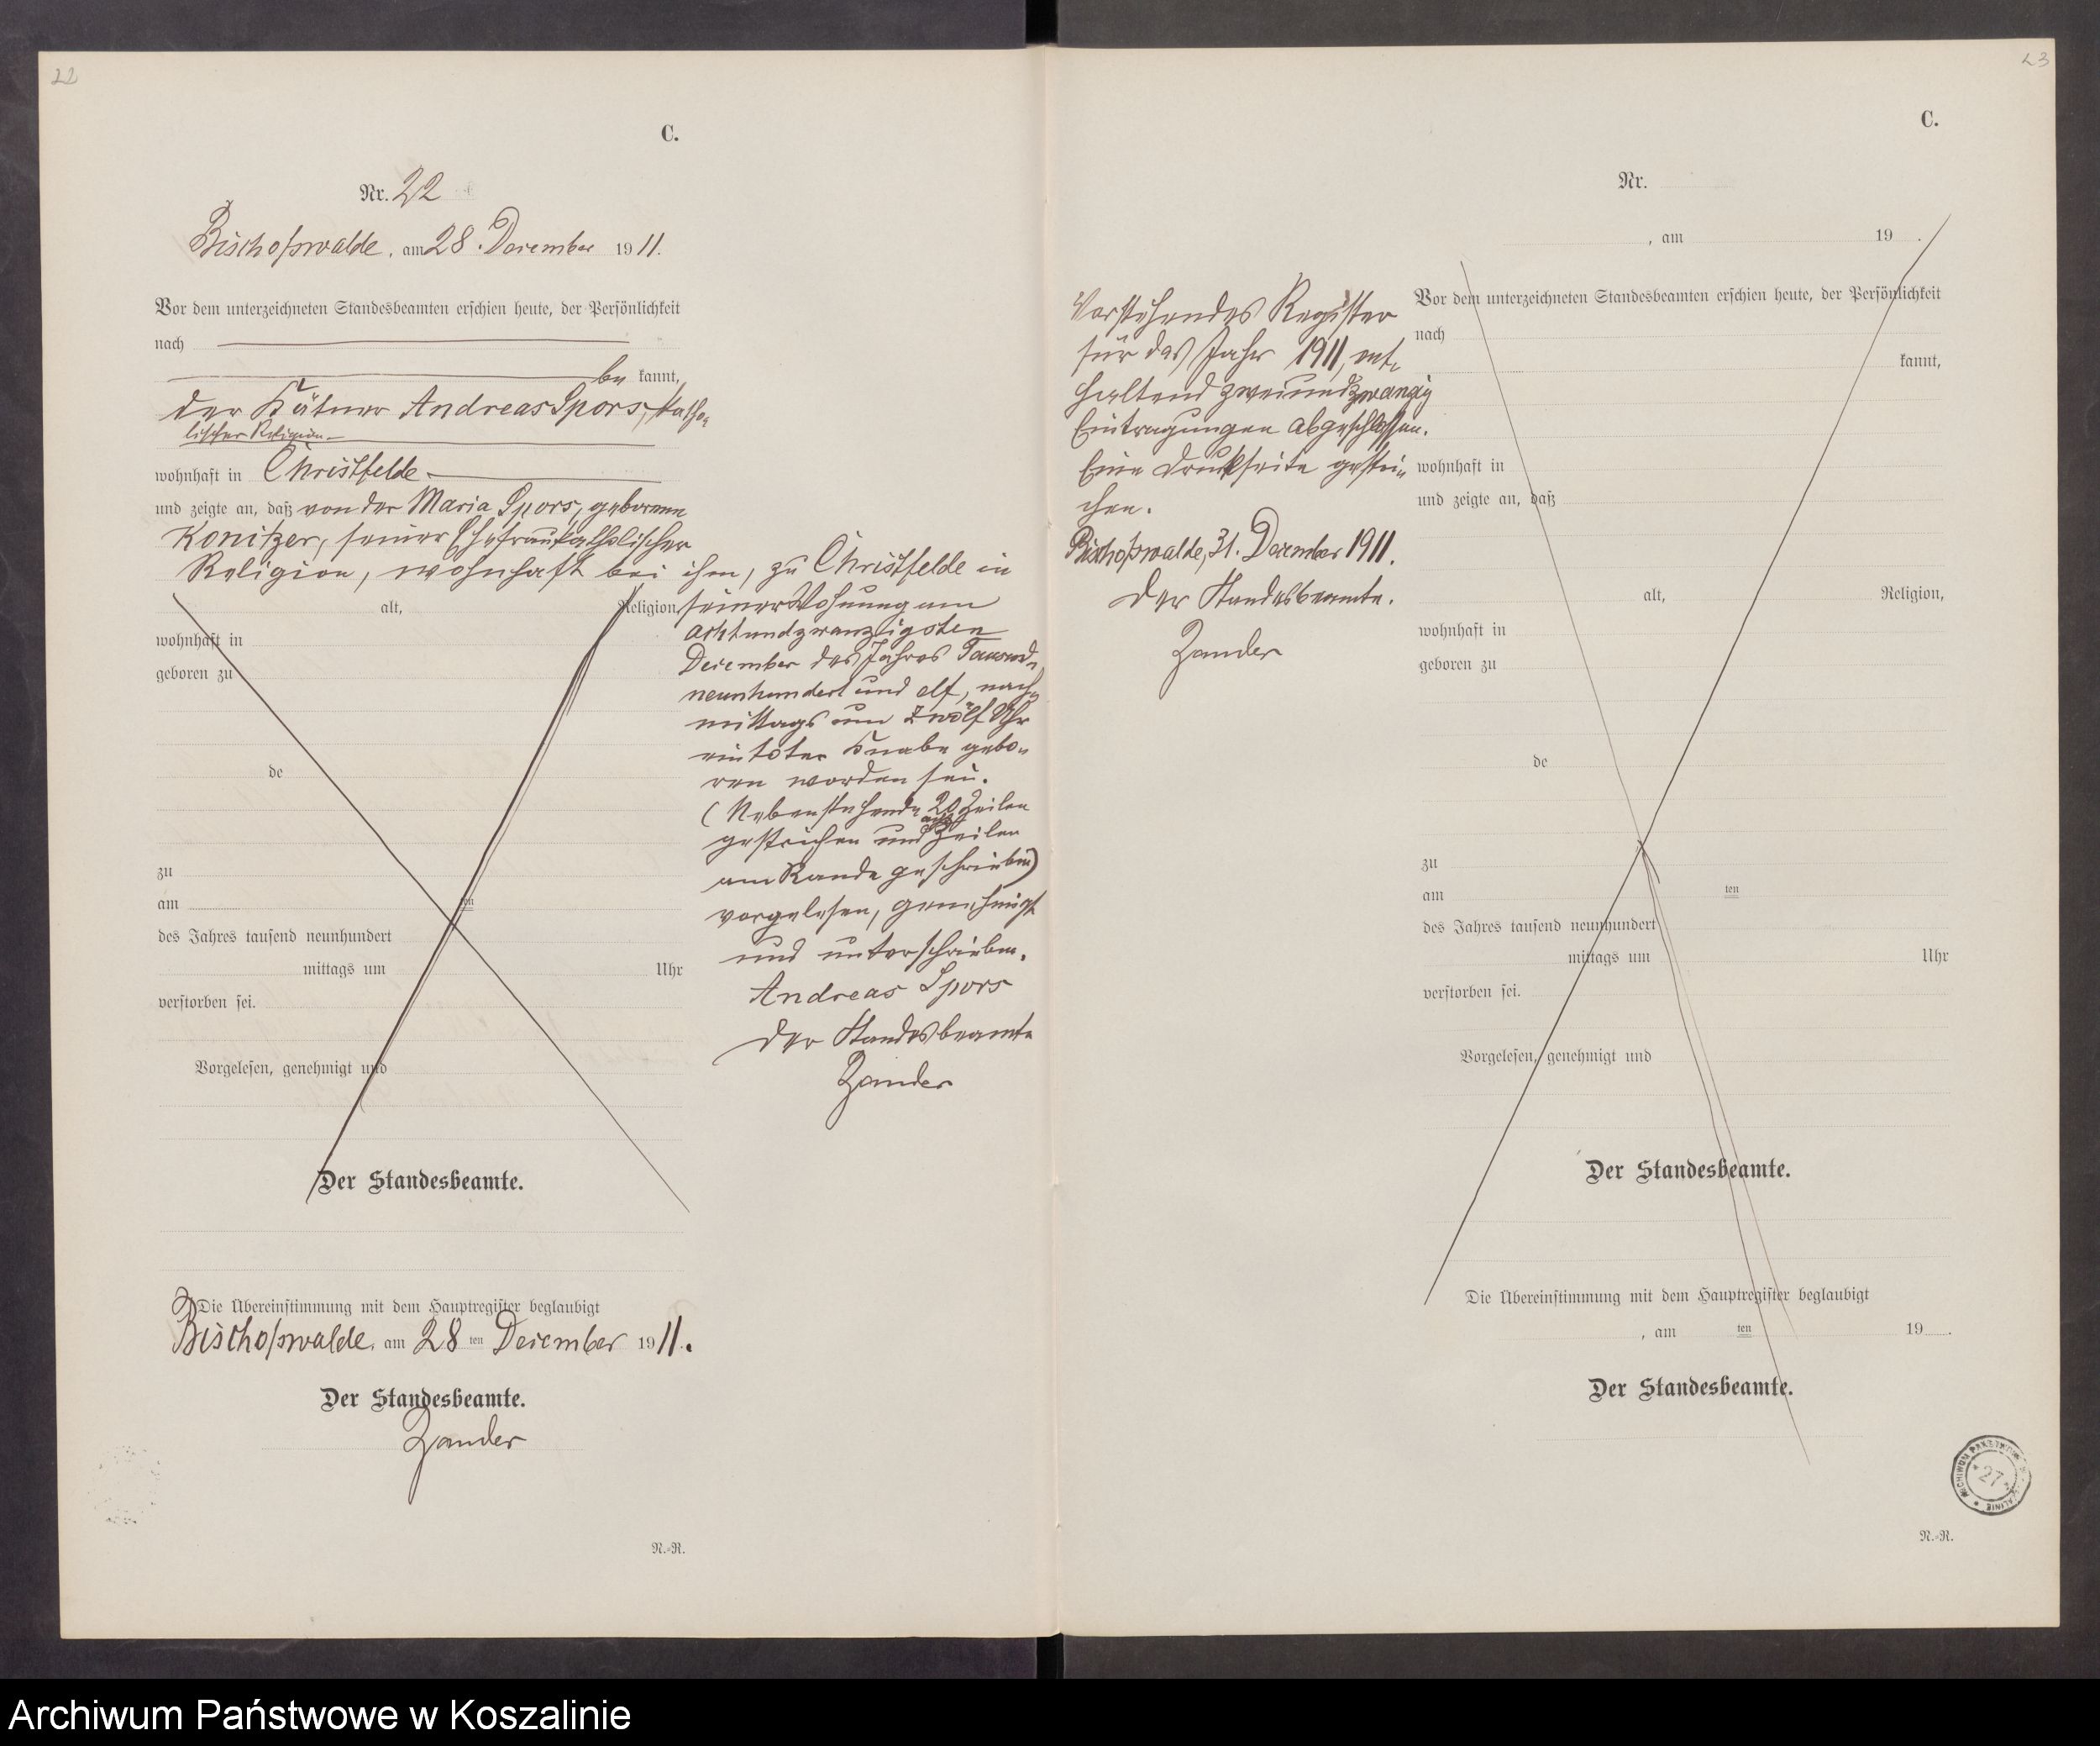 22
C.
Nr. 22
Bischofswalde, am 28. Dezember 1911.
Vor dem unterzeichneten Standesbeamten erschien heute, der Persönlichkeit
nach
be kannt,
der Kätner Andreas Spors, katho-
lischer Religion
wohnhaft in Christfelde
und zeigte an, daß von der Maria Spors, geborenen
Konitzer, seiner Ehefrau katholischer
Religion, wohnhaft bei ihm, zu Christfelde in
alt, Religion,
wohnhaft in
geboren zu
de
zu
am ten
des Jahres tausend neunhundert
mittags um Uhr
verstorben sei.
Vorgelesen, genehmigt und
Der Standesbeamte.
seiner Wohnung am
achtundzwanzigsten
Dezember des Jahres Tausend-
neunhundert und elf, nach-
mittags um zwölf Uhr
ein toter Knabe gebo-
ren worden sei.
(Nebenstehende 20 Zeilen
gestrichen und Zeilen
am Rande geschrieben)
vorgelesen, genehmigt
und unterschrieben.
Andreas Spors
Der Standesbeamte
Zander
Die Übereinstimmung mit dem Hauptregister beglaubigt
Bischofswalde, am 28 ten Dezember 1911.
Der Standesbeamte.
Zander
N.-R.
23
C.
Nr.
, am 19 .
Vorstehendes Register
für das Jahr 1911, ent-
haltend zweiundzwanzig
Eintragungen abgeschlossen.
Eine Druckseite gestri-
chen.
Bischofswalde, 31. Dezember 1911.
Der Standesbeamte.
Zander
Vor dem unterzeichneten Standesbeamten erschien heute, der Persönlichkeit
nach
kannt,
wohnhaft in
und zeigte an, daß
alt, Religion,
wohnhaft in
geboren zu
de
zu
am ten
des Jahres tausend neunhundert
mittags um Uhr
verstorben sei.
Vorgelesen, genehmigt und
Der Standesbeamte.
Die Übereinstimmung mit dem Hauptregister beglaubigt
, am ten 19 .
Der Standesbeamte.
27
N.-R.
Archiwum Państwowe w Koszalinie